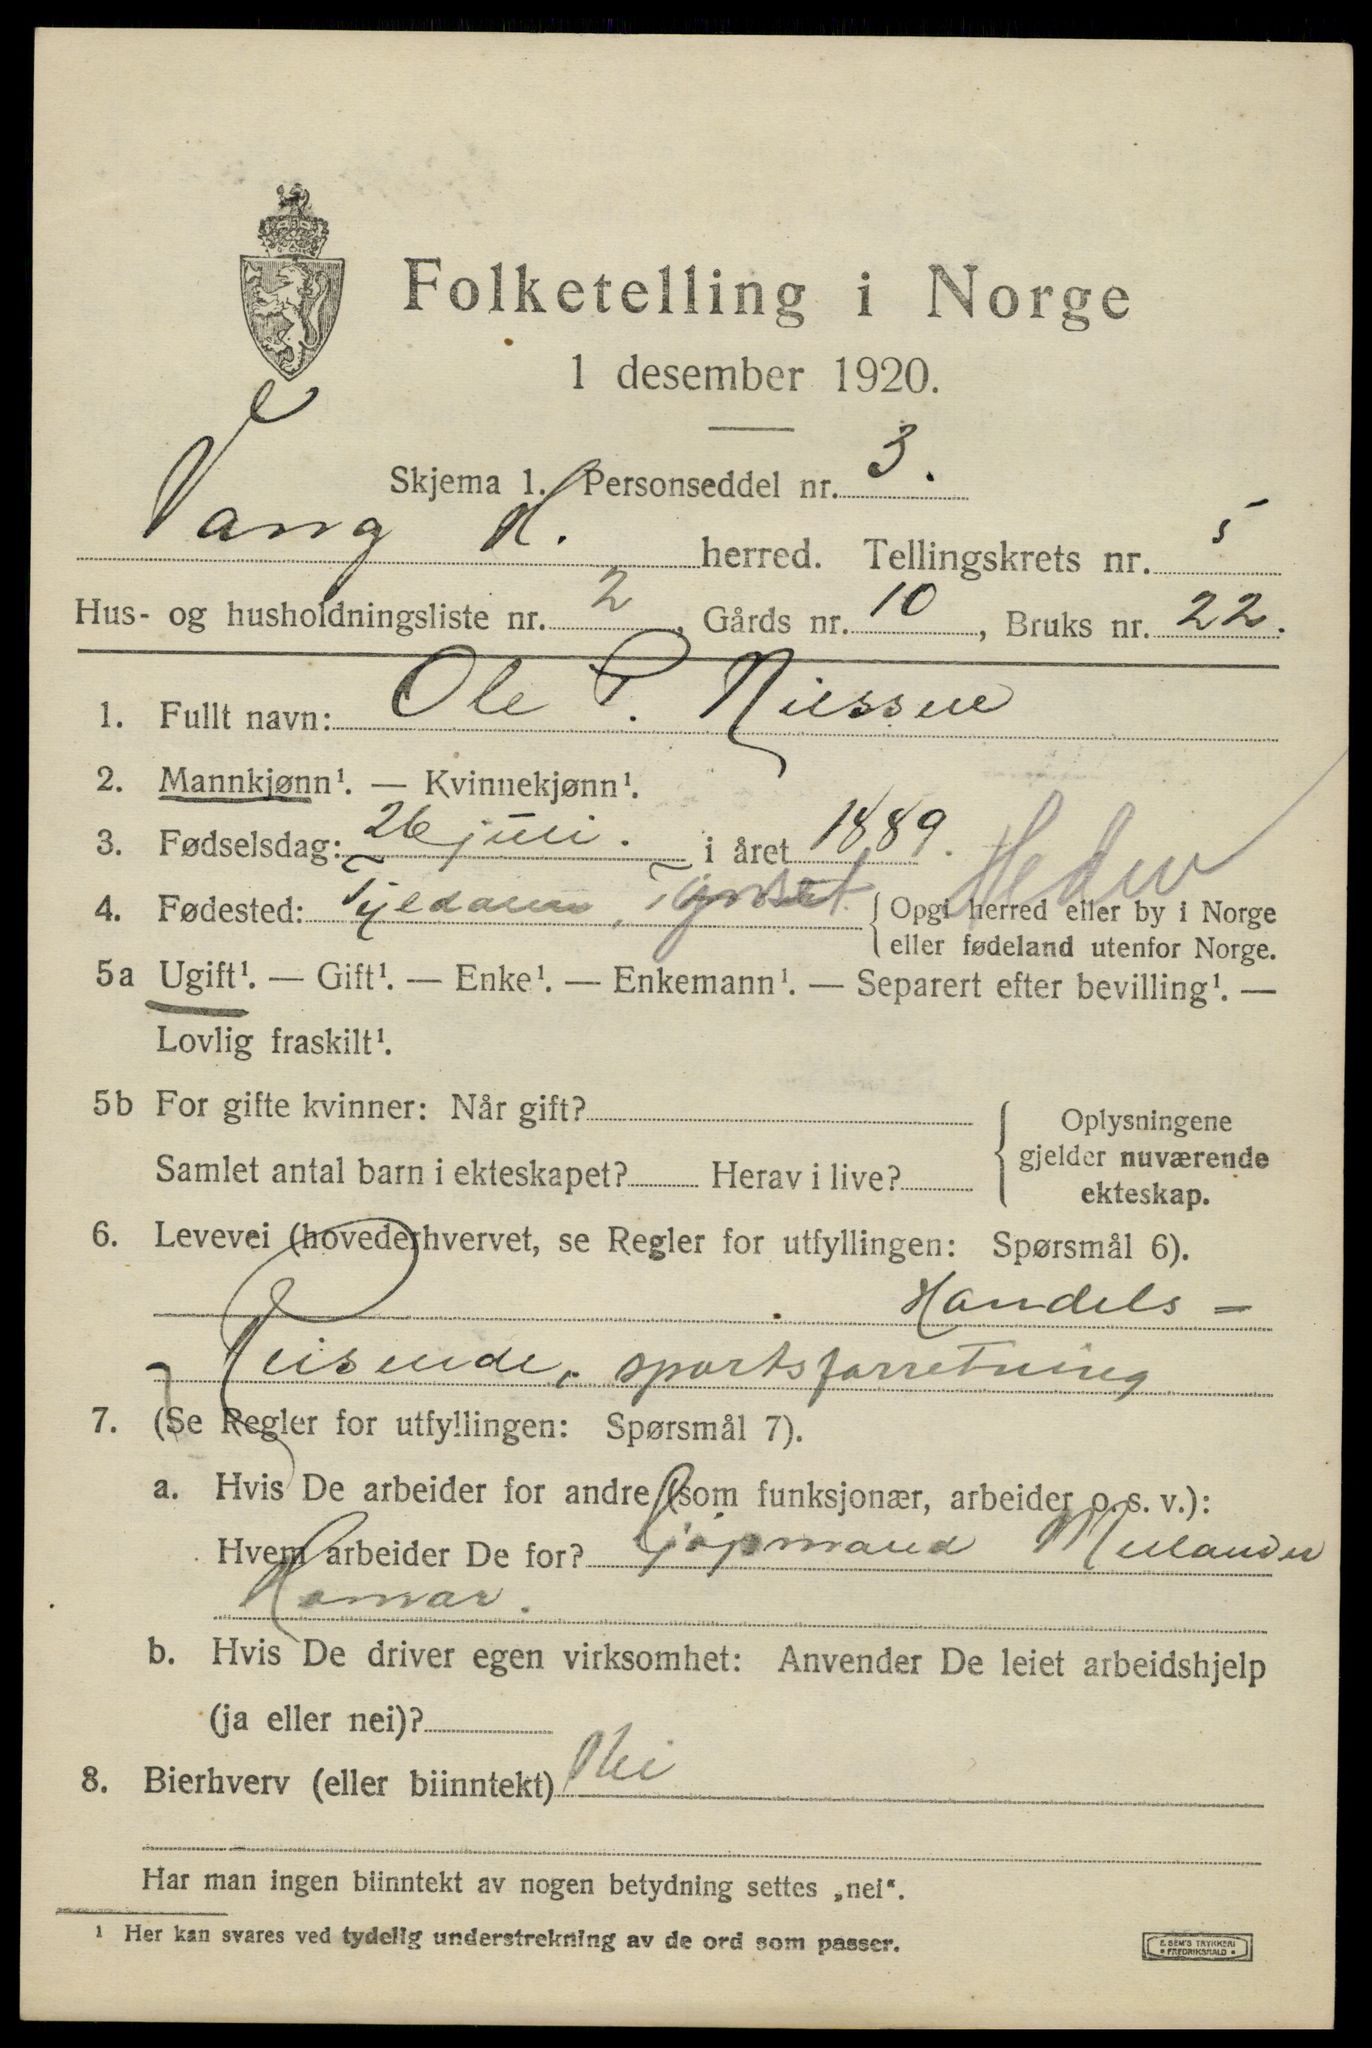 Folketelling i Norge
1 desember 1920.
Skjema 1. Personseddel nr. 3.
Vang H. herred. Tellingskrets nr. 5
Hus- og husholdningsliste nr. 2, Gårds nr. 10, Bruks nr. 22.
1. Fullt navn: Ole P. Nilssen
2. Mannkjønn¹. — Kvinnekjønn¹.
3. Fødselsdag: 26 juli. i året 1889.
4. Fødested: Tyldalen, Tynset Hedm {Opgi herred eller by i Norge
eller fødeland utenfor Norge.
5a Ugift¹. — Gift¹. — Enke¹. — Enkemann¹. — Separert efter bevilling¹. —
Lovlig fraskilt¹.
5b For gifte kvinner: Når gift? { Oplysningene
gjelder nuværende
Samlet antal barn i ekteskapet? Herav i live?
ekteskap.
6. Levevei (hovederhvervet, se Regler for utfyllingen: Spørsmål 6).
Handels =
Reisende, sportsforretning
7. (Se Regler for utfyllingen: Spørsmål 7).
a. Hvis De arbeider for andre (som funksjonær, arbeider o. s. v.):
Hvem arbeider De for? Kjøpmand
Hamar.
b. Hvis De driver egen virksomhet: Anvender De leiet arbeidshjelp
(ja eller nei)?
8. Bierhverv (eller biinntekt) Nei
Har man ingen biinntekt av nogen betydning settes „nei“.
¹ Her kan svares ved tydelig understrekning av de ord som passer.
E. SEM'S TRYKKERI
• FREDRIKSHALD •